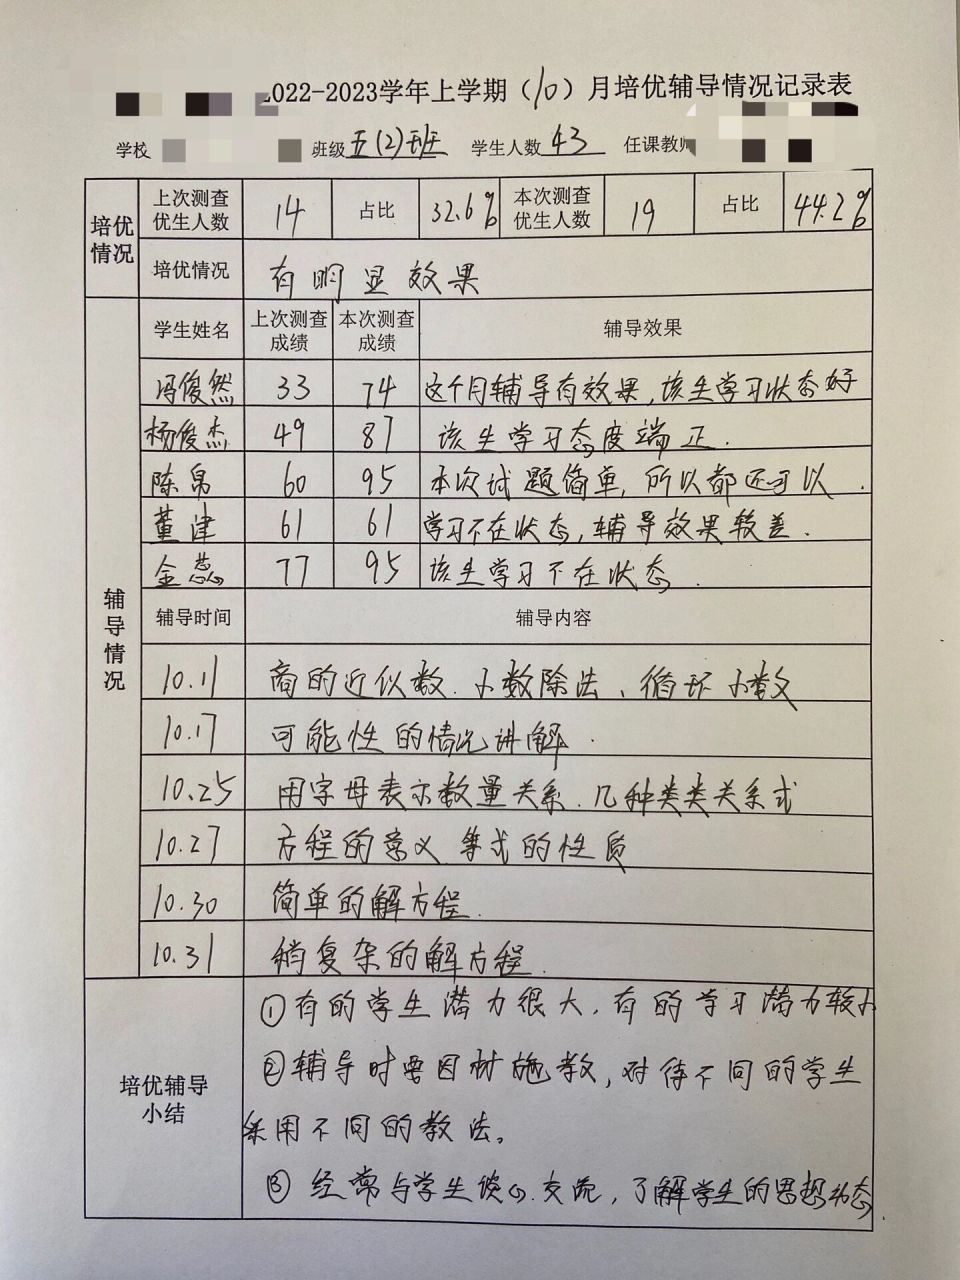 2022-2023学年上学期（10）月培优辅导情况记录表
学校 班级 五(2)班 学生人数 43 任课教师
培优情况 上次测查优生人数 14 占比 32.6% 本次测查优生人数 19 占比 44.2%
培优情况 有明显效果
辅导情况 学生姓名 上次测查成绩 本次测查成绩 辅导效果
冯俊然 33 74 这个月辅导有效果,该生学习状态好
杨俊杰 49 87 该生学习态度端正.
陈帛 60 95 本次试题简单,所以都还可以.
董津 61 61 学习不在状态,辅导效果较差.
金蕊 77 95 该生学习不在状态.
辅导时间 辅导内容
10.11 商的近似数.小数除法、循环小数
10.17 可能性的情况讲解.
10.25 用字母表示数量关系.几种类类关系式
10.27 方程的意义 等式的性质
10.30 简单的解方程.
10.31 稍复杂的解方程.
培优辅导小结 ①有的学生潜力很大,有的学习潜力较小
②辅导时要因材施教,对待不同的学生
采用不同的教法。
③经常与学生谈心.交流,了解学生的思想动态